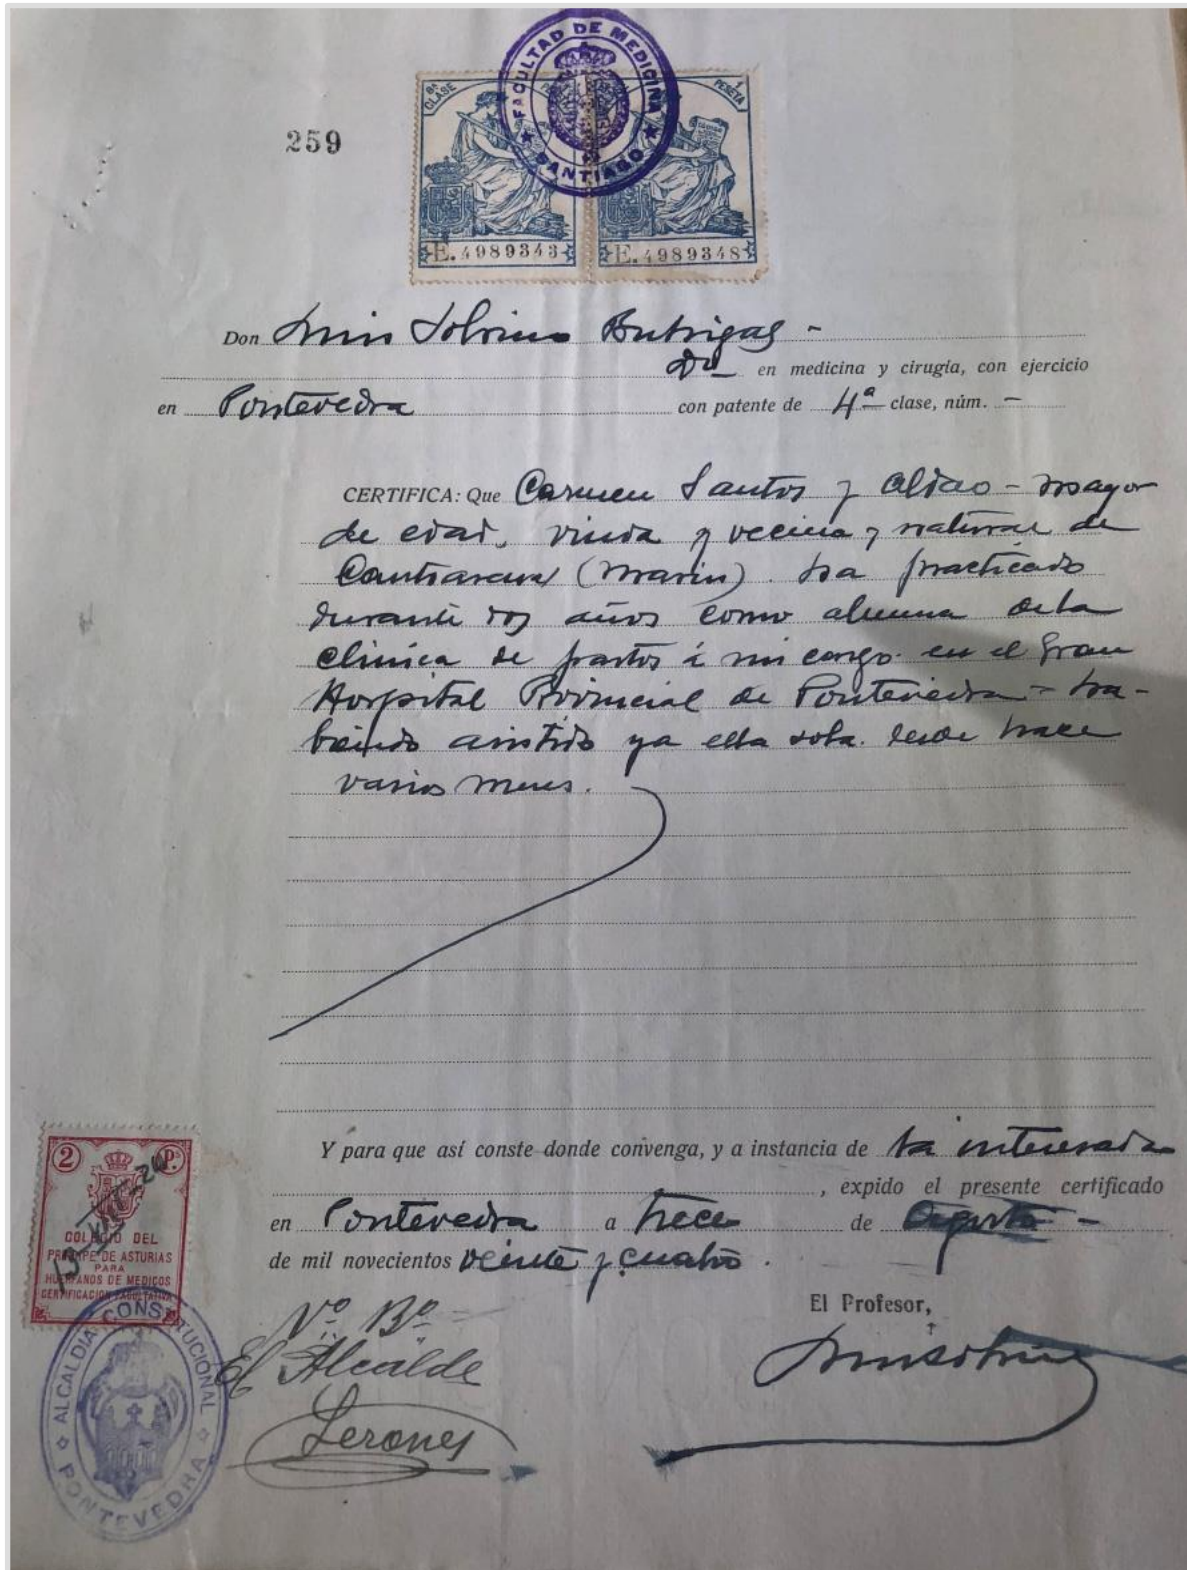 FACULTAD DE MEDICINA
SANTIAGO
8ª CLASE
1 PESETA
259
E.4989343
E.4989348
Don Luis Sobrino Buhigas -
Dr en medicina y cirugía, con ejercicio
en Pontevedra con patente de 4ª clase, núm. -
CERTIFICA: Que Carmen Santos y Aldao - mayor
de edad, viuda y vecina y natural de
(Marin). ha practicado
durante dos años como alumna de la
clínica de partos á mi cargo en el Gran
Hospital Provincial de Pontevedra - ha-
biendo asistido ya ella sola desde hace
varios meses.
Y para que así conste donde convenga, y a instancia de la interesada
, expido el presente certificado
en Pontevedra a trece de Agosto -
de mil novecientos veinte y cuatro.
2 Ps
COLEGIO DEL
PRINCIPE DE ASTURIAS
PARA
HUERFANOS DE MEDICOS
CERTIFICACION FACULTATIVA
El Profesor,
Vº Bº
El Alcalde
Lerones
ALCALDIA CONSTITUCIONAL
PONTEVEDRA